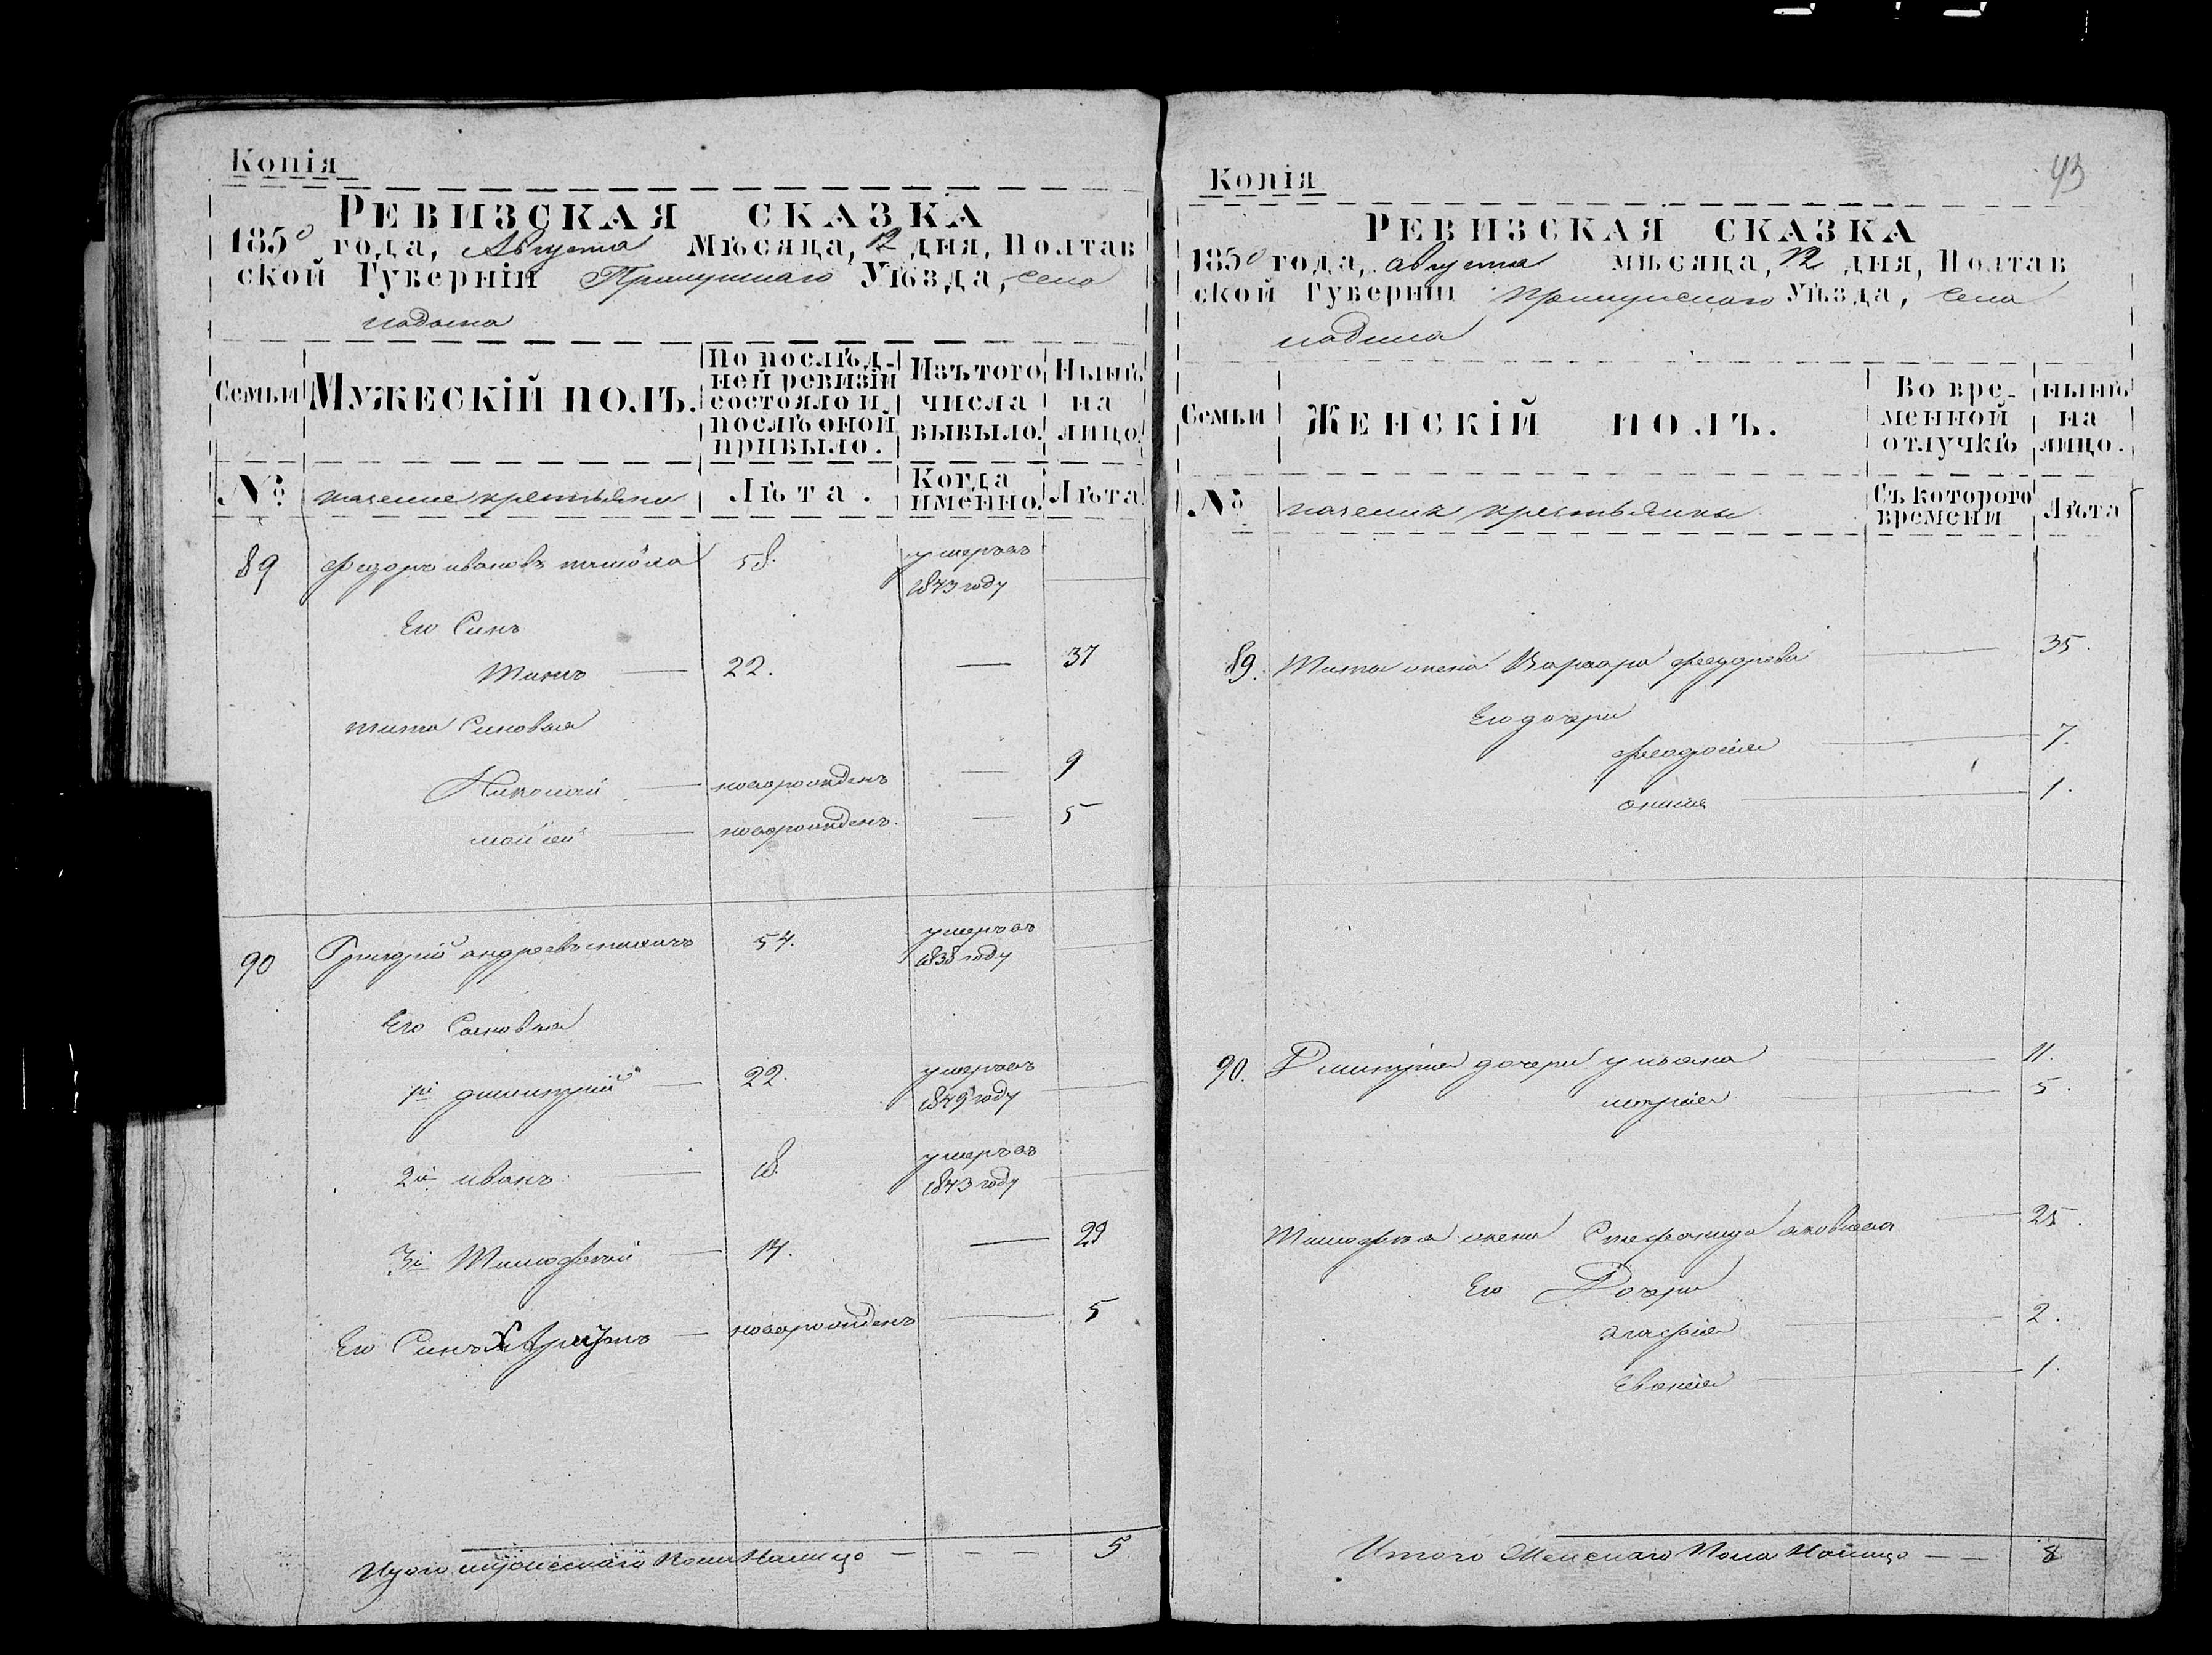 Копія
РЕВИЗСКАЯ СКАЗКА
1850 года, Августа Мѣсяца, 12 дня, Полтав
ской Губерніи Прилуцкаго Уѣзда, села
Семьи МУЖЕСКІЙ ПОЛЪ. По послѣд- ней ревизіи состояло и послѣ оной прибыло. Изъ того числа выбыло. Нынѣ на лицо.
№ крестьяне Лѣта. Когда именно. Лѣта
89 Федоръ ивановъ 58. умеръ въ
1843 году
Его Синъ
Титъ — 22. — 37
тита Синовья
Николай — новорожденъ — 9
мойсей — новорожденъ. — 5
90 Григорій андреевъ 54. умеръ въ
1838 году
Его Сыновья
1й дмитрій — 22. умеръ въ
1849 году
2й иванъ — 18. умеръ въ
1843 году
3й Тимофей — 14. — 29
Его Синъ Харитонъ — новорожденъ — 5
Итого мужескаго Пола Налицо — — — 5
43
Копія
РЕВИЗСКАЯ СКАЗКА
1850 года, августа мѣсяца, 12 дня, Полтав
ской Губерніи прилуцкаго Уѣзда, села
Семьи ЖЕНСКІЙ ПОЛЪ. Во вре- менной отлучкѣ нынѣ на лицо.
№ крестьянки Съ котораго времени Лѣта
89. Тита жена Варвара федорова — 35.
Его дочери
феодосия — 7.
1.
90. Дмитрия дочери ульяна — 11.
мария — 5.
Тимофея жена Стефанида яковлева — 25.
Его Дочери
агафия — 2.
1.
Итого Женскаго Пола Налицо — — 8